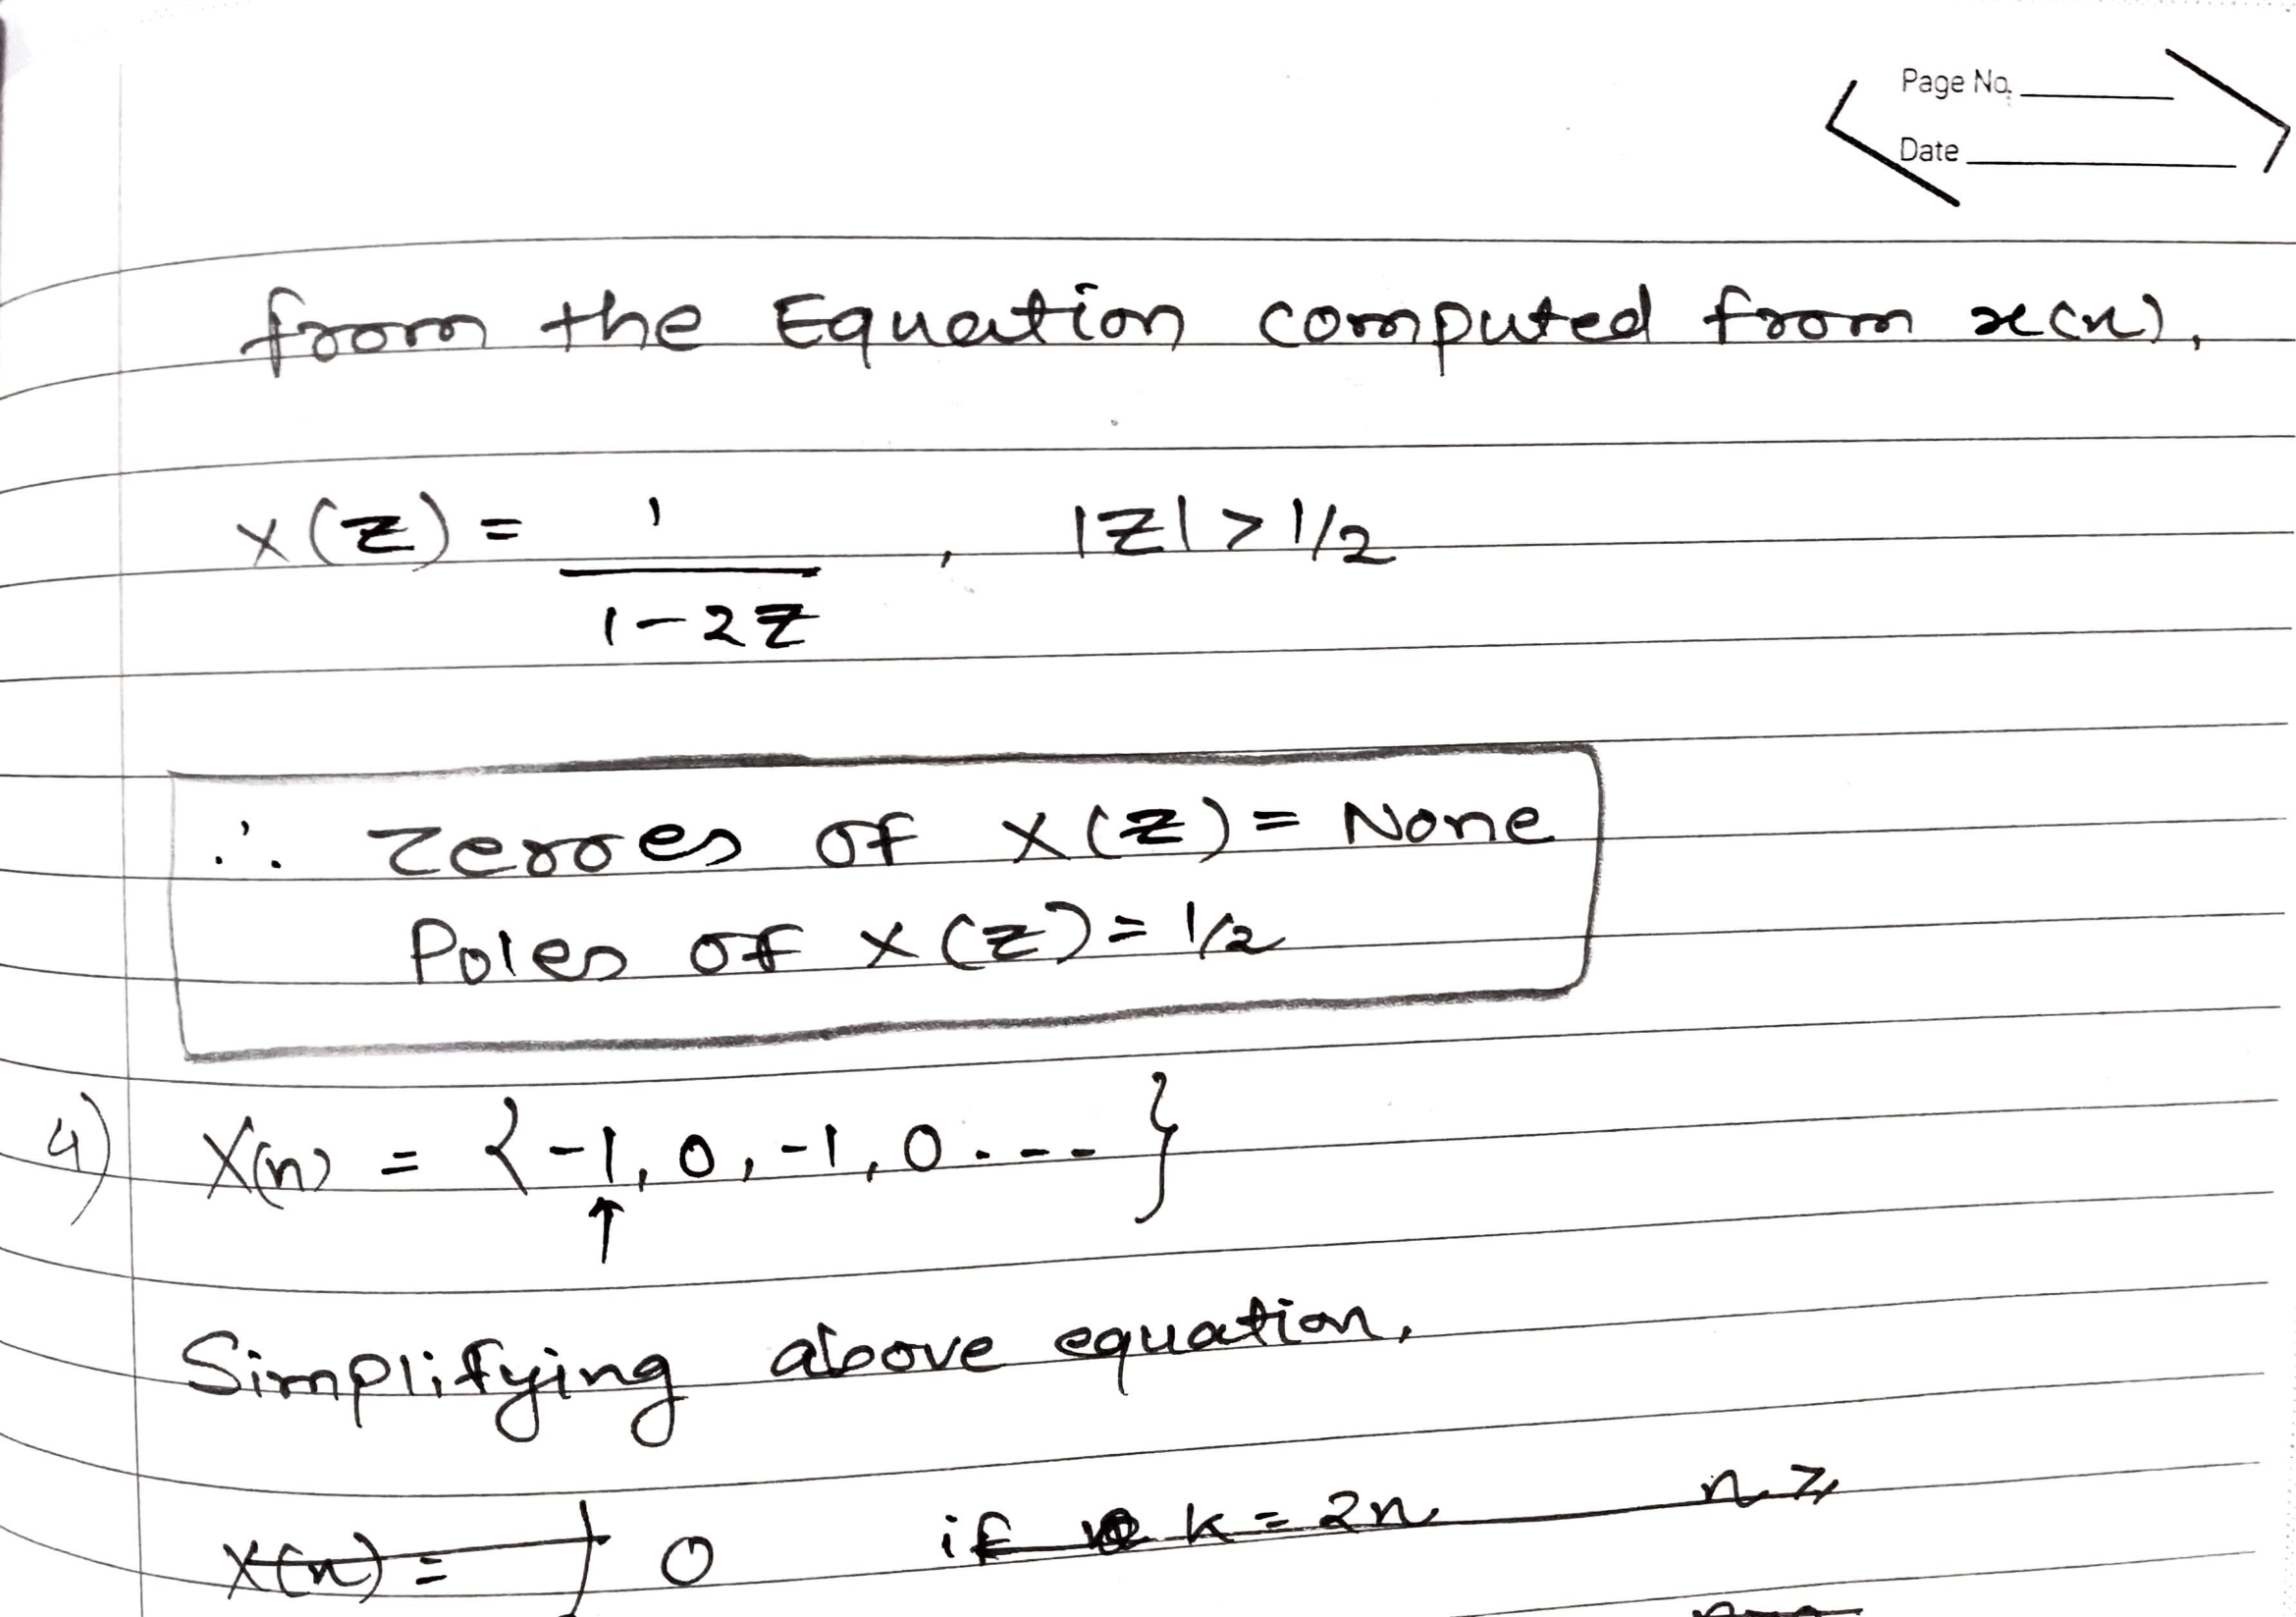 Page No.
Date
from the Equation computed from x(n),
X(Z) = 1 / 1-2Z , |Z| > 1/2
∴ Zeroes of X(Z) = None
Poles of X(Z) = 1/2
4) X(n) = {-1, 0, -1, 0 . - - - }
↑
Simplifying above equation,
X(n) = { 0 if k = 2n n ≥